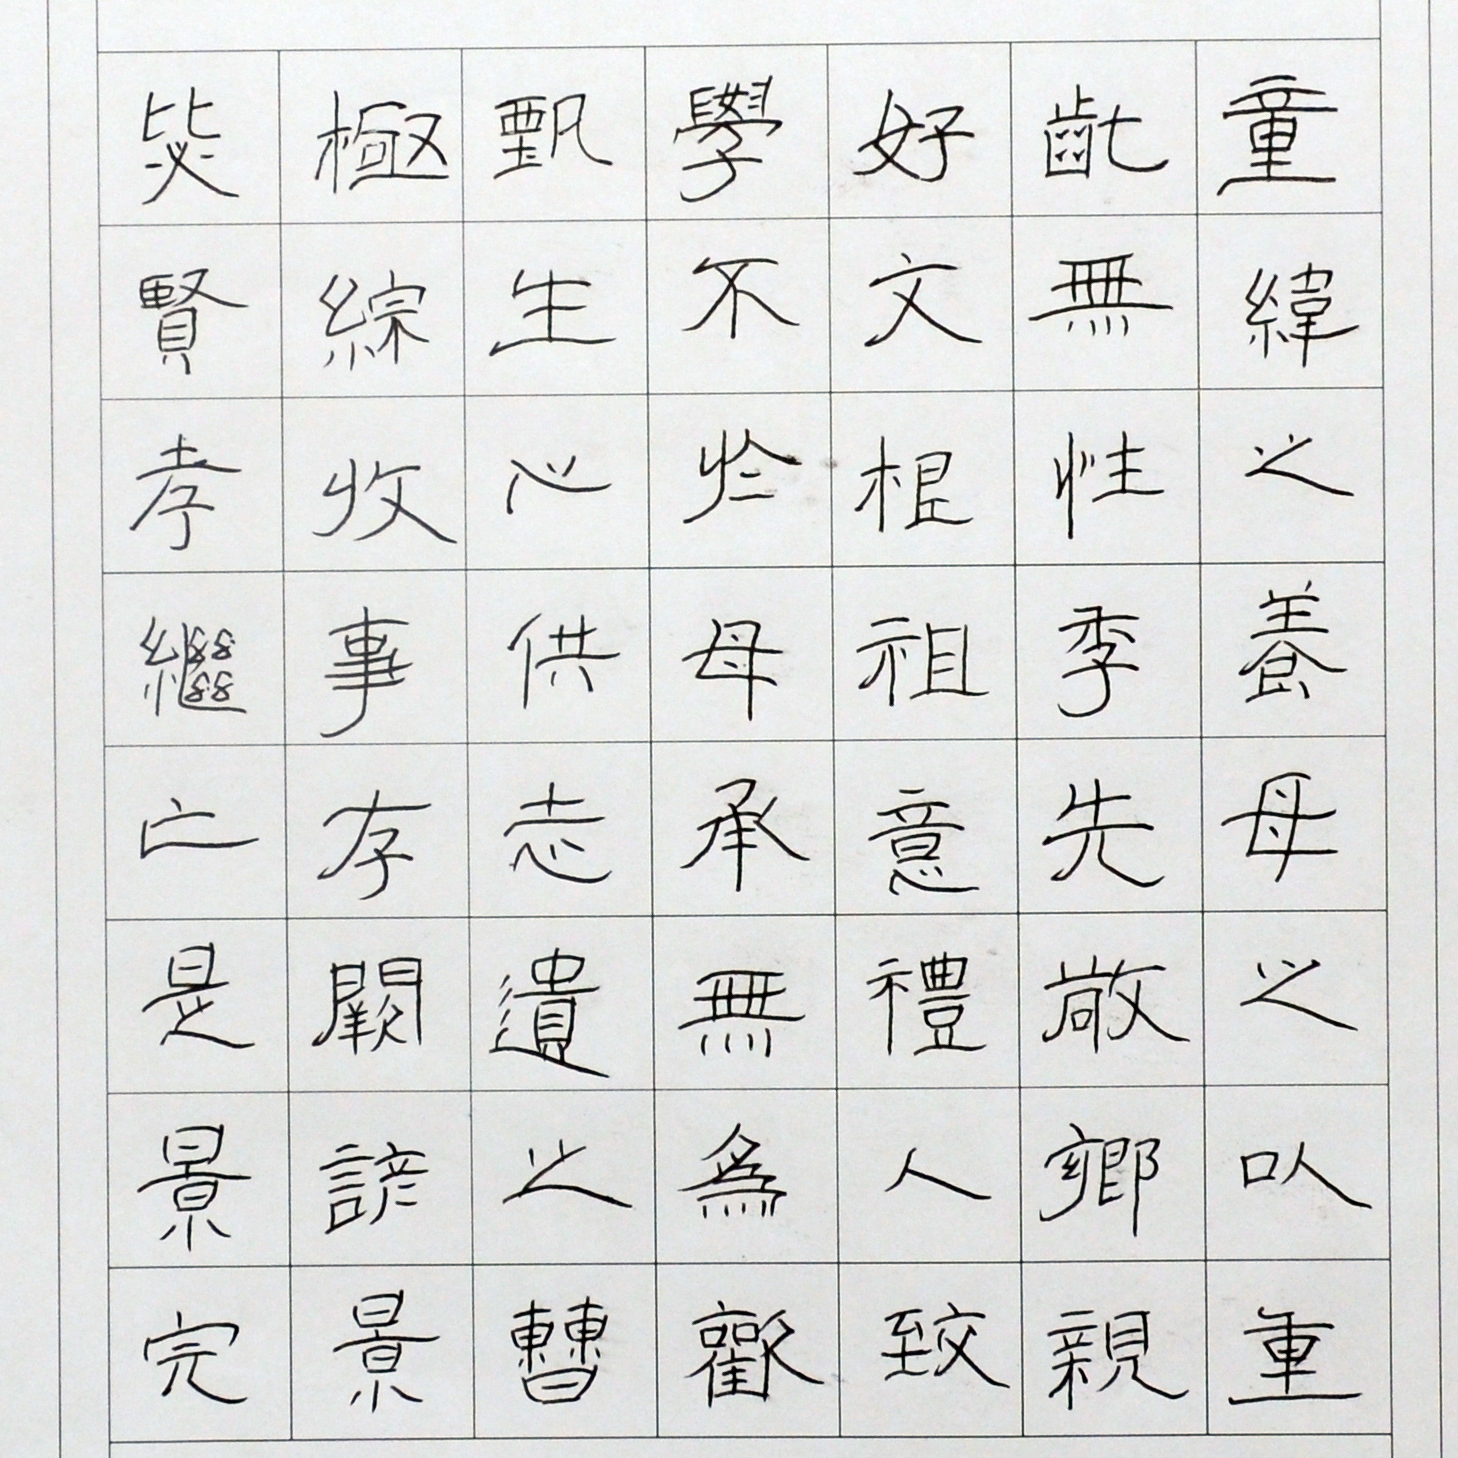 童齔好學甄極毖
緯無文不生綜賢
之性根於心收孝
養季祖母供事繼
母先意承志存亡
之敬禮無遺闕是
以鄉人為之諺景
重親致歡曹景完